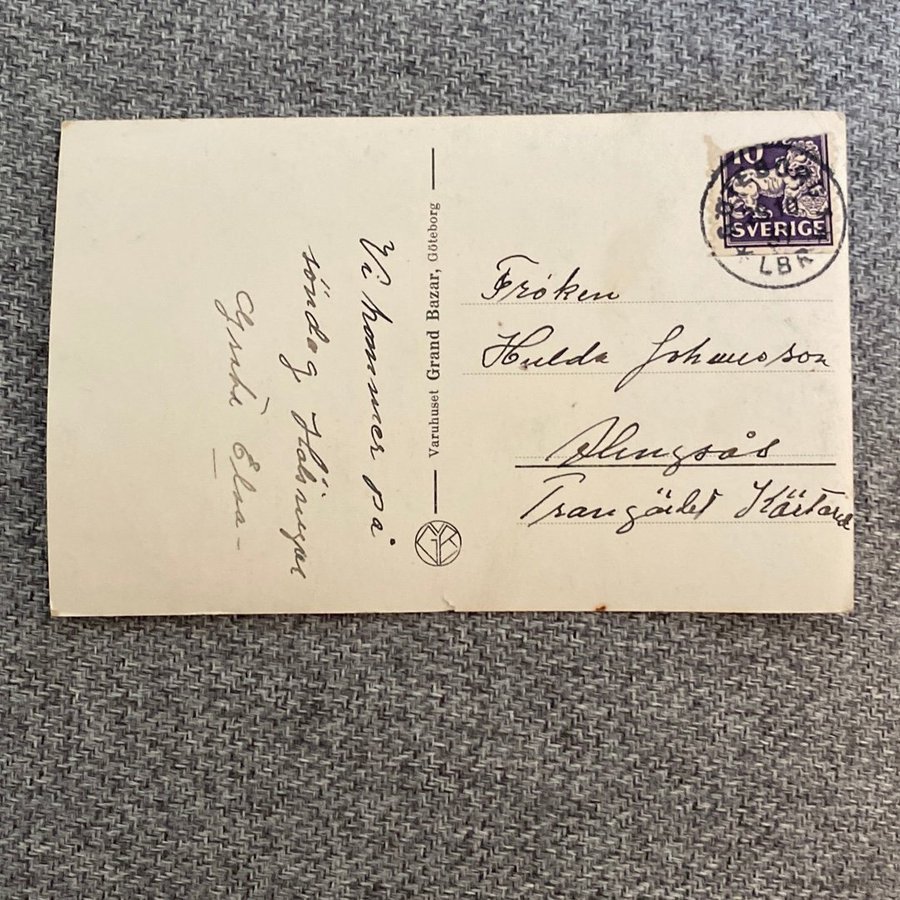 Vi kommer på
söndag Hälsningar
Elsa -
Varuhuset Grand Bazar, Göteborg
10
SVERIGE
GÖTEBORG
LBR
Fröken
Hulda Johansson
Alingsås